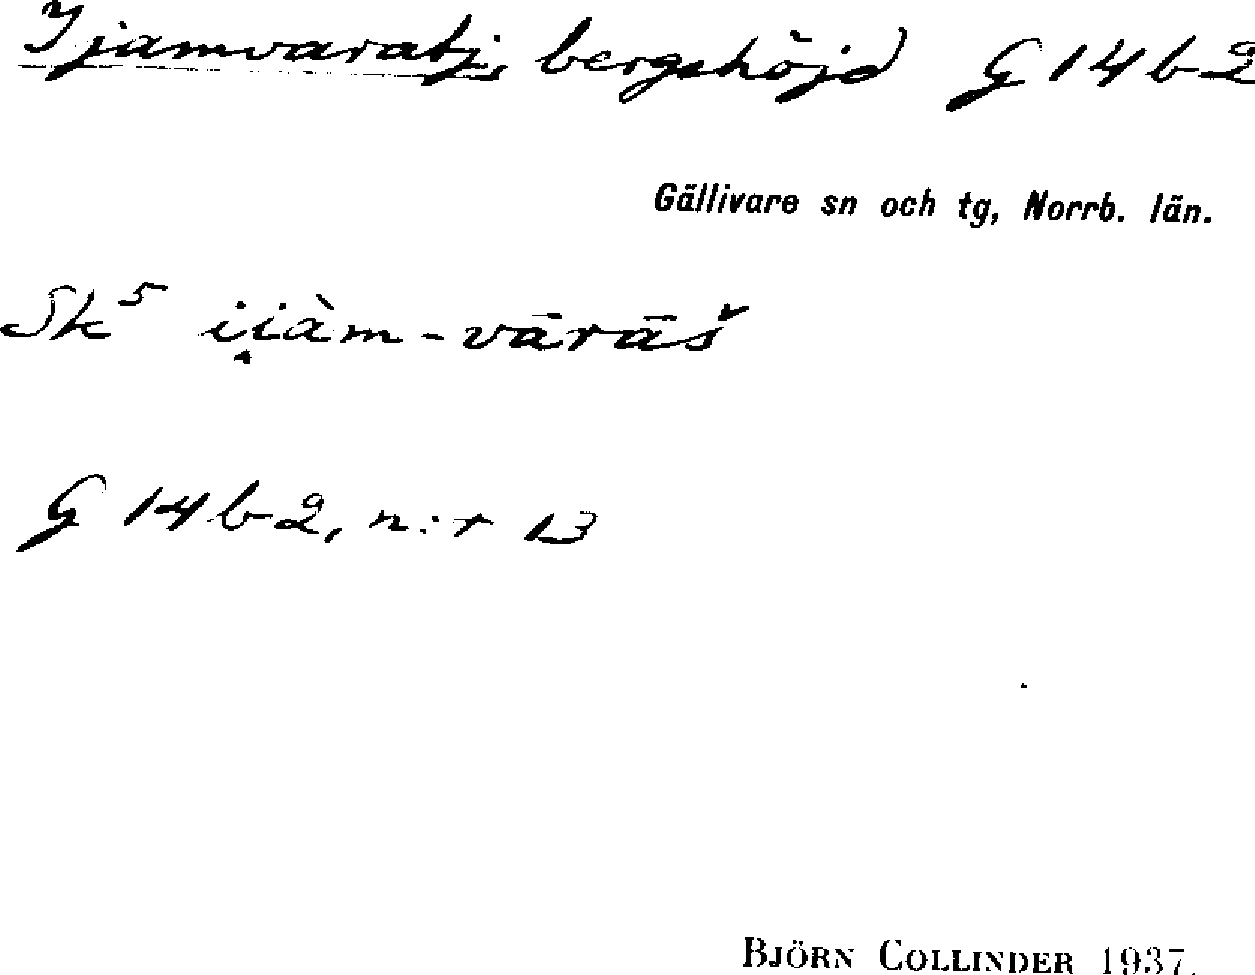 Ijamvaratj, bergshöjd G 14 b 2
Gällivare sn och tg, Norrb. län.
Sk⁵ i̭iàm-vārāš
G 14 b 2, n:r 13
BJÖRN COLLINDER 1937.